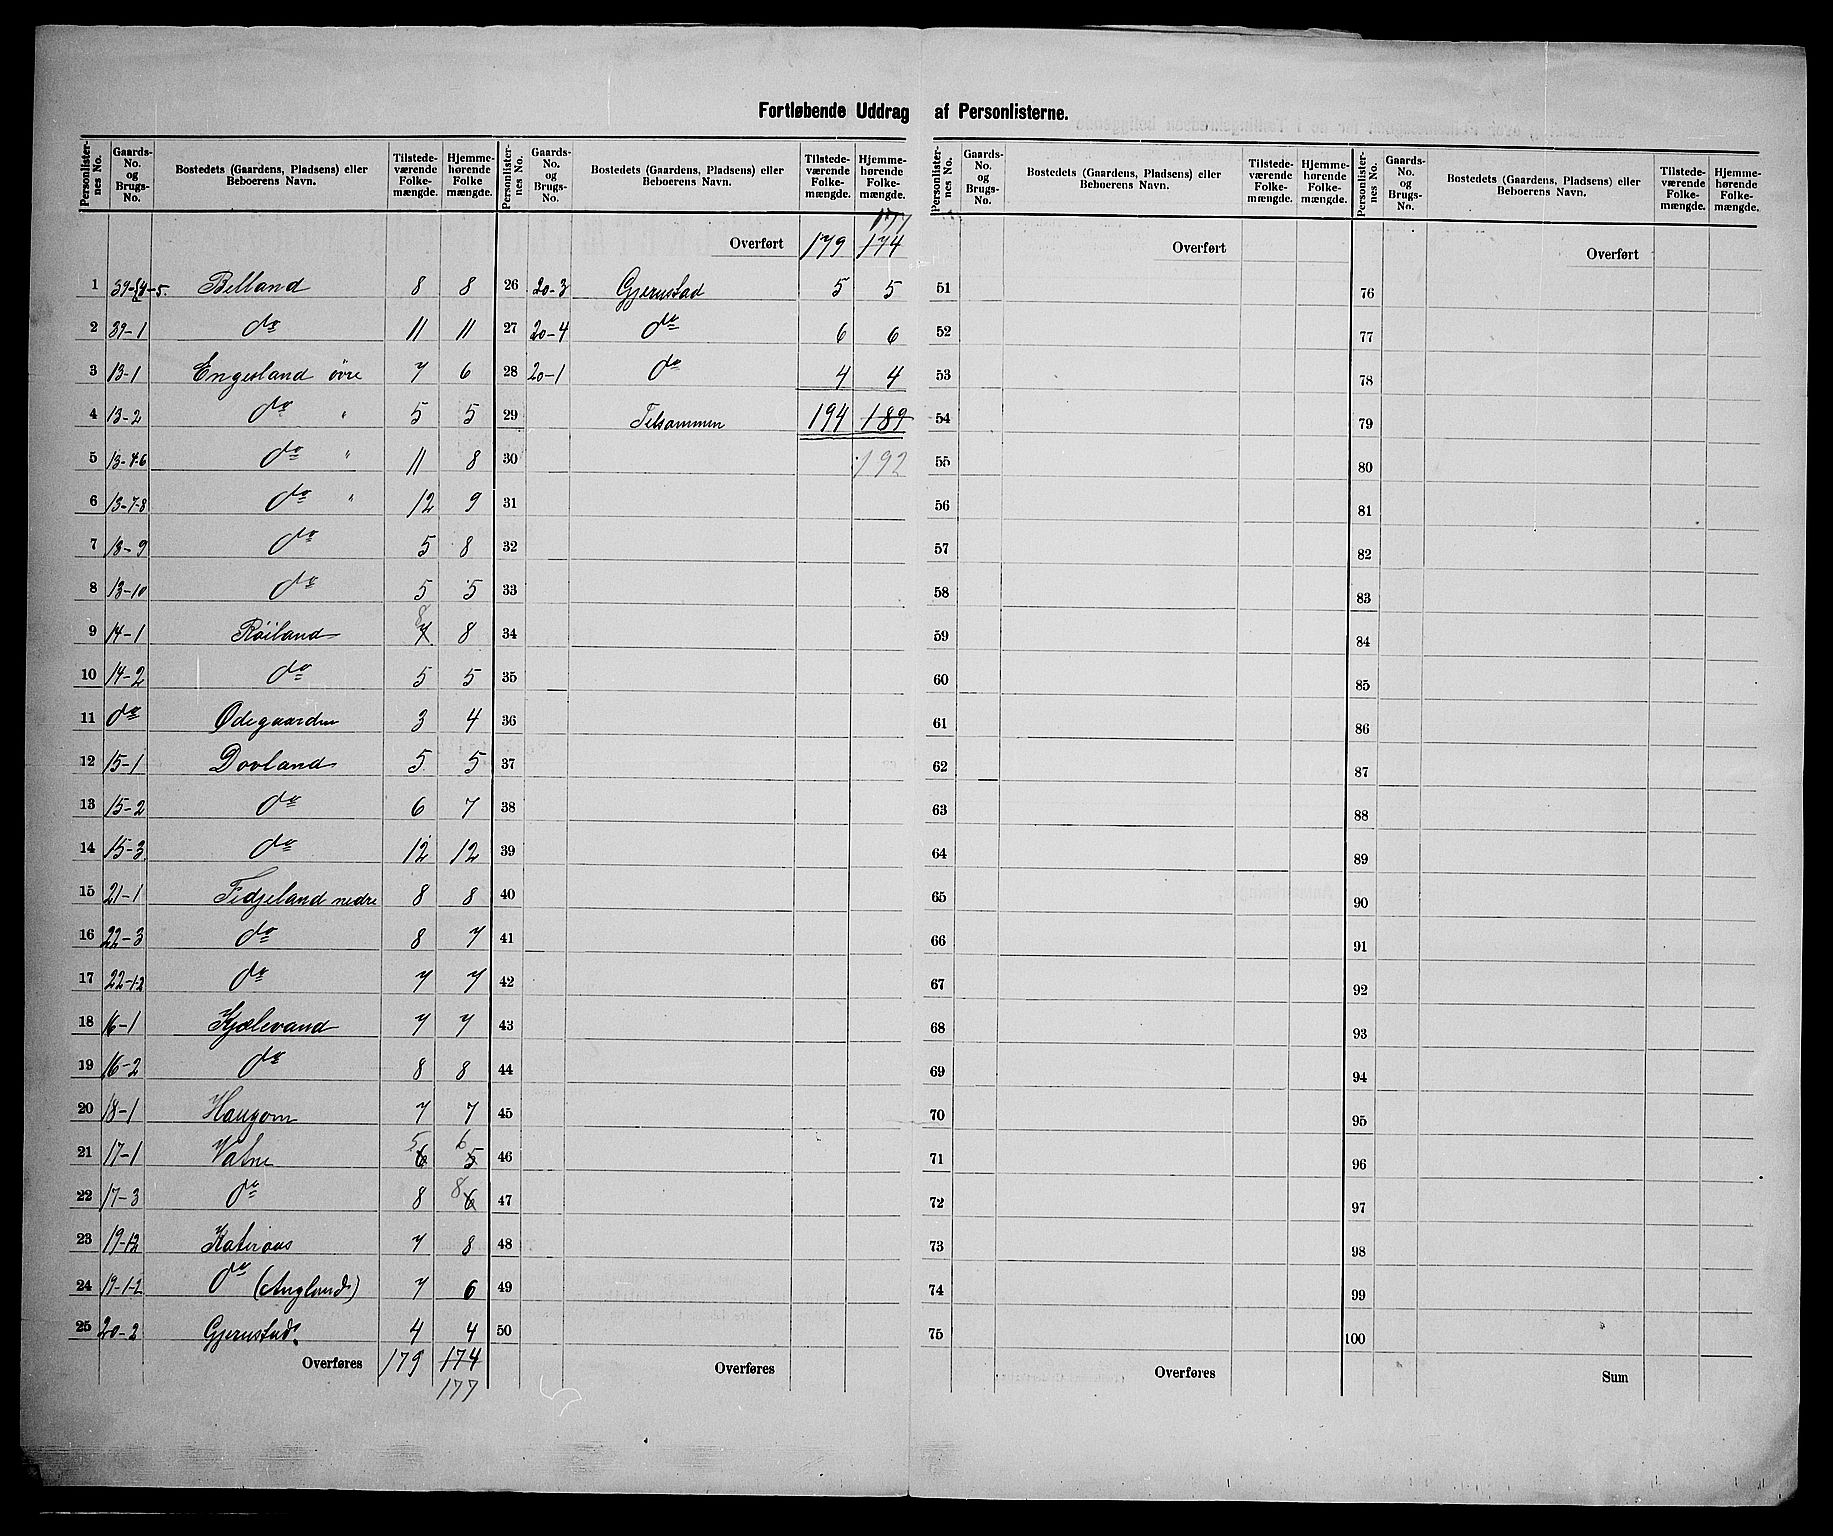 Fortløbende Uddrag af Personlisterne.
Personlister- nes No. | Gaards- No. og Brugs- No. | Bostedets (Gaardens, Pladsens) eller Beboerens Navn. | Tilstede- værende Folke- mængde. | Hjemme- hørende Folke mængde.
Personlister- nes No. | Gaards- No. og Brugs- No. | Bostedets (Gaardens, Pladsens) eller Beboerens Navn. | Tilstede- værende Folke- mængde. | Hjemme- hørende Folke- mængde.
Personlister- nes No. | Gaards- No. og Brugs- No. | Bostedets (Gaardens, Pladsens) eller Beboerens Navn. | Tilstede- værende Folke- mængde. | Hjemme- hørende Folke- mængde.
Personlister- nes No. | Gaards- No. og Brugs- No. | Bostedets (Gaardens, Pladsens) eller Beboerens Navn. | Tilstede- værende Folke- mængde. | Hjemme- hørende Folke- mængde.
1 Belland 8 8
2 39-1 do 11 11
3 13-1 Engesland övre 7 6
4 13-2 do " 5 5
5 13-4-6 do " 11 8
6 13-7-8 do " 12 9
7 13-9 do 5 8
8 13-10 do 5 5
9 14-1 Röiland 7 8 8
10 14-2 do 5 5
11 do Ødegaarden 3 4
12 15-1 Dovland 5 5
13 15-2 do 6 7
14 15-3 do 12 12
15 21-1 Fidjeland nedre 8 8
16 22-3 do 8 7
17 22-1-2 do 7 7
18 16-1 Kjælevand 7 7
19 16-2 do 8 8
20 18-1 Haugom 7 7
21 17-1 Vatne 6 5 5 6
22 17-3 do 8 6 8
23 19-12 Kateraas 7 8
24 19-1-2 do (Augland) 7 6
25 20-2 Gjerustad 4 4
Overføres 179 174
177
177
Overført 179 174
26 20-3 Gjerustad 5 5
27 20-4 do 6 6
28 20-1 do 4 4
29 Tilsammen 194 189
30 192
31
32
33
34
35
36
37
38
39
40
41
42
43
44
45
46
47
48
49
50
Overføres
Overført
51
52
53
54
55
56
57
58
59
60
61
62
63
64
65
66
67
68
69
70
71
72
73
74
75
Overføres
Overført
76
77
78
79
80
81
82
83
84
85
86
87
88
89
90
91
92
93
94
95
96
97
98
99
100
Sum